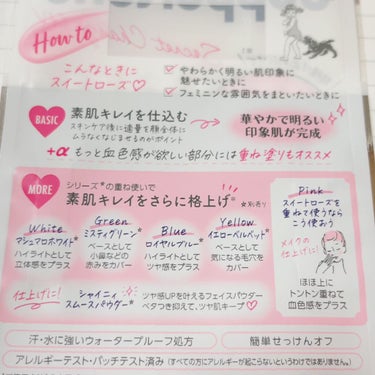 How to
Secret Cha
こんなときに
スイートローズ♡
やわらかく明るい肌印象に
魅せたいときに
フェミニンな雰囲気をまといたいときに
BASIC
素肌キレイを仕込む
スキンケア後に適量を顔全体に
ムラなくなじませるのがポイント
華やかで明るい
印象肌が完成
+α もっと血色感が欲しい部分には重ね塗りもオススメ
MORE
シリーズ*の重ね使いで
素肌キレイをさらに格上げ
*別売り
White
マシュマロホワイト*
ハイライトとして
立体感をプラス
Green
ミスティグリーン*
ベースとして
小鼻などの
赤みをカバー
Blue
ロイヤルブルー*
ハイライトとして
ツヤ感をプラス
Yellow
イエローベルベット*
ベースとして
気になる毛穴を
カバー
Pink
スイートローズを
重ねて使うなら
こう使おう
メイクの
仕上げに!
ほほ上に
トントン重ねて
血色感をプラス
仕上げに!
シャイニィ
スムースパウダー*
ツヤ感UPを叶えるフェイスパウダー
ベタつき抑えて、ツヤ肌キープ♡
汗・水に強いウォータープルーフ処方
簡単せっけんオフ
アレルギーテスト・パッチテスト済み(すべての方にアレルギーが起こらないというわけではありません。)